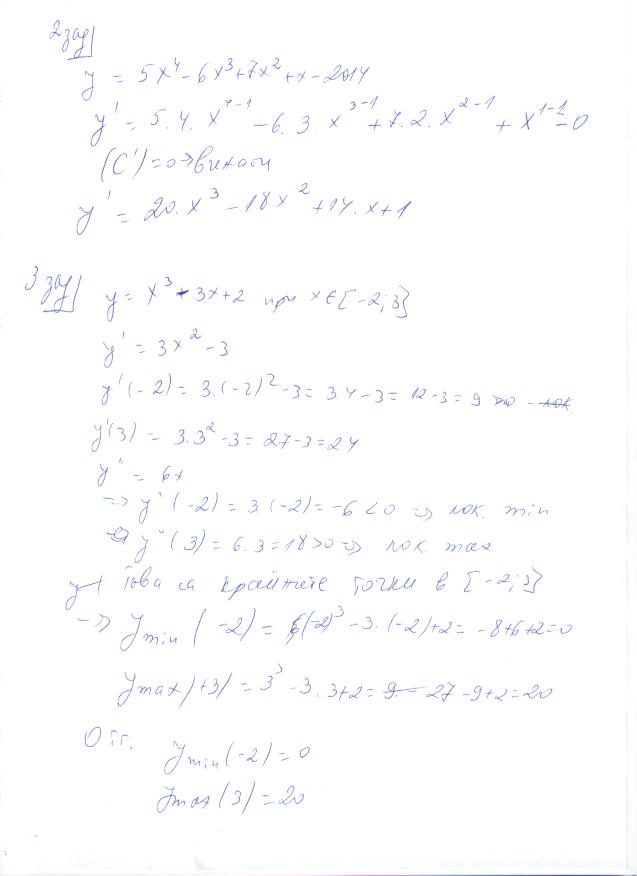 2 зад
y = 5x⁴ - 6x³ + 7x² + x - 2014
y' = 5.4.x⁴⁻¹ - 6.3.x³⁻¹ + 7.2.x²⁻¹ + x¹⁻¹ - 0
(C') = 0 → винаги
y' = 20.x³ - 18x² + 14.x + 1
3 зад
y = x³ - 3x + 2 при x ∈ [-2;3]
y' = 3x² - 3
y'(-2) = 3.(-2)² - 3 = 3.4 - 3 = 12 - 3 = 9
y'(3) = 3.3² - 3 = 27 - 3 = 24
y'' = 6x
=> y'(-2) = 3.(-2) = -6 < 0 => лок. min
y''(3) = 6.3 = 18 > 0 => лок. max
Това са крайните точки в [-2;3]
=> y min (-2) = (-2)³ - 3.(-2) + 2 = -8 + 6 + 2 = 0
y max /+3/ = 3³ - 3.3 + 2 = 27 - 9 + 2 = 20
Отг.
y min (-2) = 0
y max (3) = 20